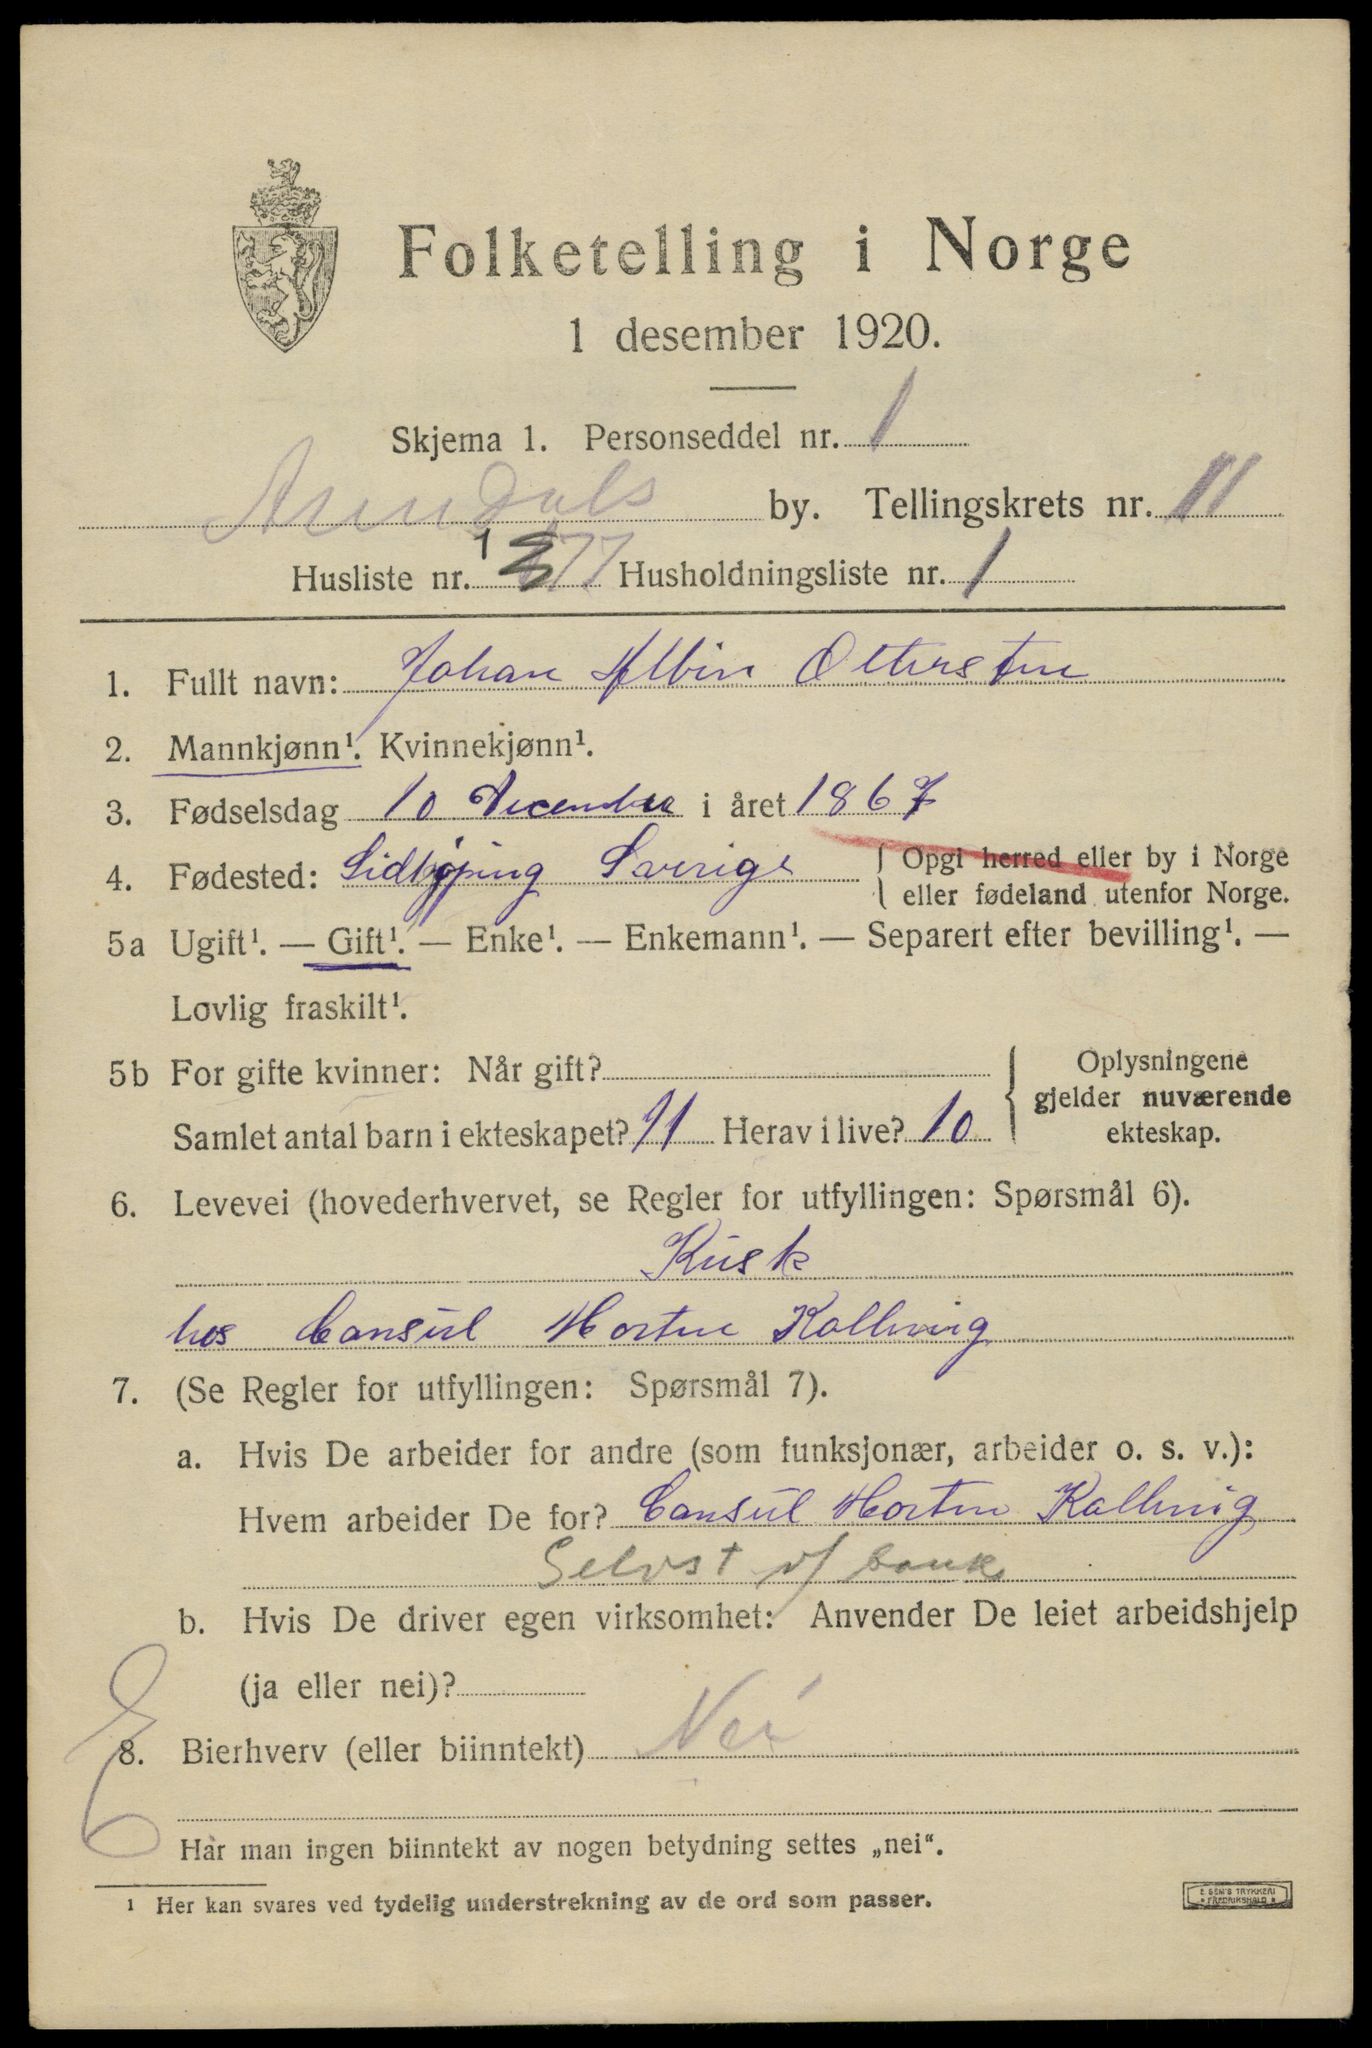 Folketelling i Norge
1 desember 1920.
Skjema 1. Personseddel nr. 1
Arendals by. Tellingskrets nr. 11
Husliste nr. 1 77 Husholdningsliste nr. 1
1. Fullt navn: Johan Albin Ottersten
2. Mannkjønn¹. Kvinnekjønn¹.
3. Fødselsdag 10 December i året 1867
4. Fødested: Lidkjøping Sverige { Opgi herred eller by i Norge
eller fødeland utenfor Norge.
5a Ugift¹. — Gift¹. — Enke¹. — Enkemann¹. — Separert efter bevilling¹. —
Lovlig fraskilt¹.
5b For gifte kvinner: Når gift?
Samlet antal barn i ekteskapet? 11 Herav i live? 10
} Oplysningene
gjelder nuværende
ekteskap.
6. Levevei (hovederhvervet, se Regler for utfyllingen: Spørsmål 6).
Kusk
hos Consul Morten Kallevig
7. (Se Regler for utfyllingen: Spørsmål 7).
a. Hvis De arbeider for andre (som funksjonær, arbeider o. s. v.):
Hvem arbeider De for? Consul Morten Kallevig
Selvst v/ bank
b. Hvis De driver egen virksomhet: Anvender De leiet arbeidshjelp
(ja eller nei)?
8. Bierhverv (eller biinntekt) Nei
Har man ingen biinntekt av nogen betydning settes „nei“.
¹ Her kan svares ved tydelig understrekning av de ord som passer.
E. SEM'S TRYKKERI
FREDRIKSHALD